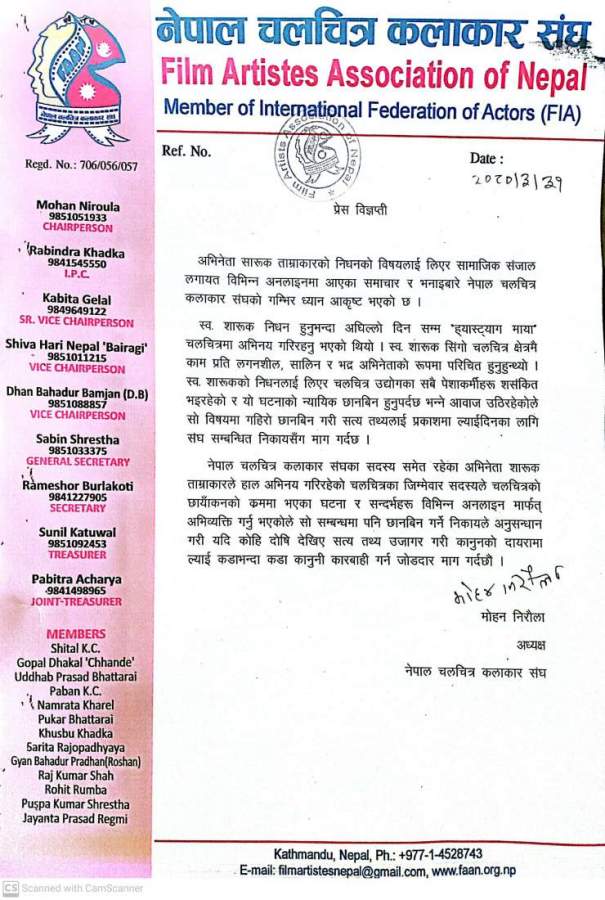 नेपाल चलचित्र कलाकार संघ
Film Artistes Association of Nepal
Member of International Federation of Actors (FIA)
FAAN
नेपाल चलचित्र कलाकार संघ
Regd. No.: 706/056/057
Ref. No.
Film Artists Association of Nepal
Date :
2020/3/29
Mohan Niroula
9851051933
CHAIRPERSON
Rabindra Khadka
9841545550
I.P.C.
Kabita Gelal
9849649122
SR. VICE CHAIRPERSON
Shiva Hari Nepal 'Bairagi'
9851011215
VICE CHAIRPERSON
Dhan Bahadur Bamjan (D.B)
9851088857
VICE CHAIRPERSON
Sabin Shrestha
9851033375
GENERAL SECRETARY
Rameshor Burlakoti
9841227905
SECRETARY
Sunil Katuwal
9851092453
TREASURER
Pabitra Acharya
9841498965
JOINT-TREASURER
MEMBERS
Shital K.C.
Gopal Dhakal 'Chhande'
Uddhab Prasad Bhattarai
Paban K.C.
Namrata Kharel
Pukar Bhattarai
Khusbu Khadka
Sarita Rajopadhyaya
Gyan Bahadur Pradhan(Roshan)
Raj Kumar Shah
Rohit Rumba
Puspa Kumar Shrestha
Jayanta Prasad Regmi
प्रेस विज्ञप्ती
अभिनेता सारूक ताम्राकारको निधनको विषयलाई लिएर सामाजिक संजाल
लगायत विभिन्न अनलाइनमा आएका समाचार र भनाइबारे नेपाल चलचित्र
कलाकार संघको गम्भिर ध्यान आकृष्ट भएको छ ।
स्व. शारूक निधन हुनुभन्दा अघिल्लो दिन सम्म "ह्यास्ट्याग माया"
चलचित्रमा अभिनय गरिरहनु भएको थियो । स्व. शारूक सिंगो चलचित्र क्षेत्रमै
काम प्रति लगनशील, सालिन र भद्र अभिनेताको रूपमा परिचित हुनुहुन्थ्यो ।
स्व. शारूकको निधनलाई लिएर चलचित्र उद्योगका सबै पेशाकर्मीहरू शसंकित
भइरहेको र यो घटनाको न्यायिक छानबिन हुनुपर्दछ भन्ने आवाज उठिरहेकोले
सो विषयमा गहिरो छानबिन गरी सत्य तथ्यलाई प्रकाशमा ल्याईदिनका लागि
संघ सम्बन्धित निकायसँग माग गर्दछ ।
नेपाल चलचित्र कलाकार संघका सदस्य समेत रहेका अभिनेता शारूक
ताम्राकारले हाल अभिनय गरिरहेको चलचित्रका जिम्मेवार सदस्यले चलचित्रको
छायाँकनको क्रममा भएका घटना र सन्दर्भहरू विभिन्न अनलाइन मार्फत्
अभिव्यक्ति गर्नु भएकोले सो सम्बन्धमा पनि छानबिन गर्ने निकायले अनुसन्धान
गरी यदि कोहि दोषि देखिए सत्य तथ्य उजागर गरी कानुनको दायरामा
ल्याई कडाभन्दा कडा कानुनी कारबाही गर्न जोडदार माग गर्दछौ ।
मोहन निरौला
अध्यक्ष
नेपाल चलचित्र कलाकार संघ
Kathmandu, Nepal, Ph.: +977-1-4528743
E-mail: filmartistesnepal@gmail.com, www.faan.org.np
CS Scanned with CamScanner